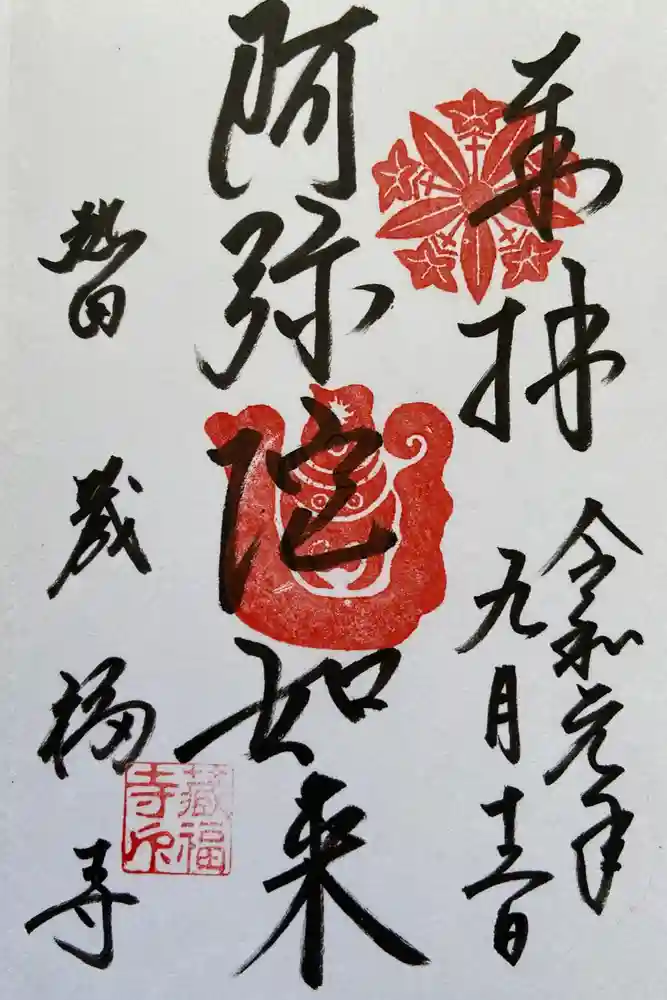 奉拝
令和元年
九月十 日
阿弥陀如来
熱田 蔵福寺
藏福寺印